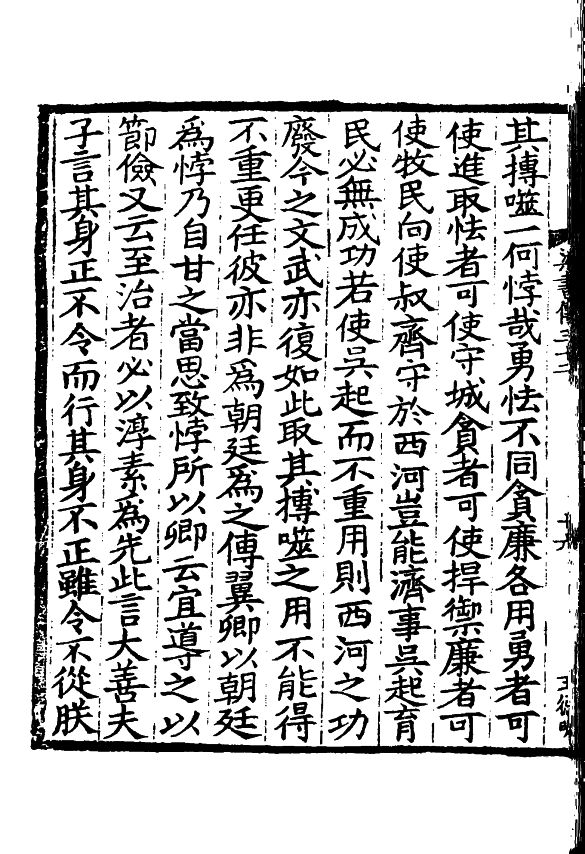 其摶噬一何悖哉勇怯不同貪廉各用勇者可
使進取怯者可使守城貪者可使捍禦廉者可
使牧民向使叔齊守於西河豈能濟事吳起育
民必無成功若使吳起而不重用則西河之功
廢今之文武亦復如此取其摶噬之用不能得
不重更任彼亦非為朝廷為之傅翼卿以朝廷
為悖乃自甘之當思致悖所以卿云宜導之以
節儉又云至治者必以淳素為先此言大善夫
子言其身正不令而行其身不正雖令不從朕